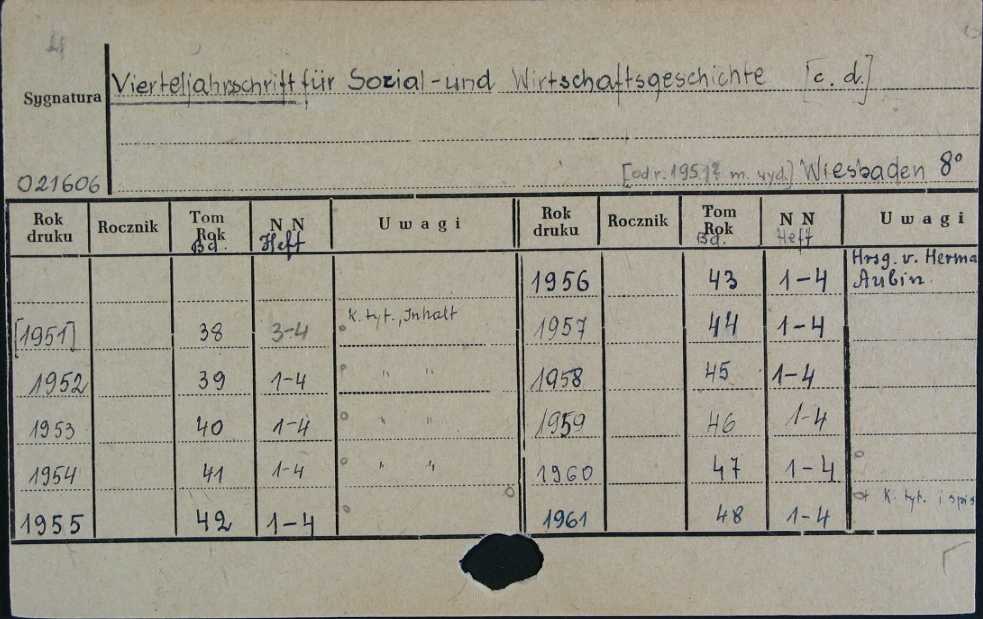 Sygnatura
Vierteljahrsschrift für Sozial-und Wirtschaftsgeschichte [c. d.]
021606
[od r. 1951? m. wyd.] Wiesbaden 8°
Rok druku Rocznik Tom Rok Bd. N N Heft Uwagi Rok druku Rocznik Tom Rok Bd. N N Heft Uwagi
1956 43 1-4 Hrsg. v. Herma Aubin.
[1951] 38 3-4 K. tyt., Inhalt 1957 44 1-4
1952 39 1-4 " " 1958 45 1-4
1953 40 1-4 " " 1959 46 1-4
1954 41 1-4 " " 1960 47 1-4
1955 42 1-4 1961 48 1-4 K. tyt. i spis